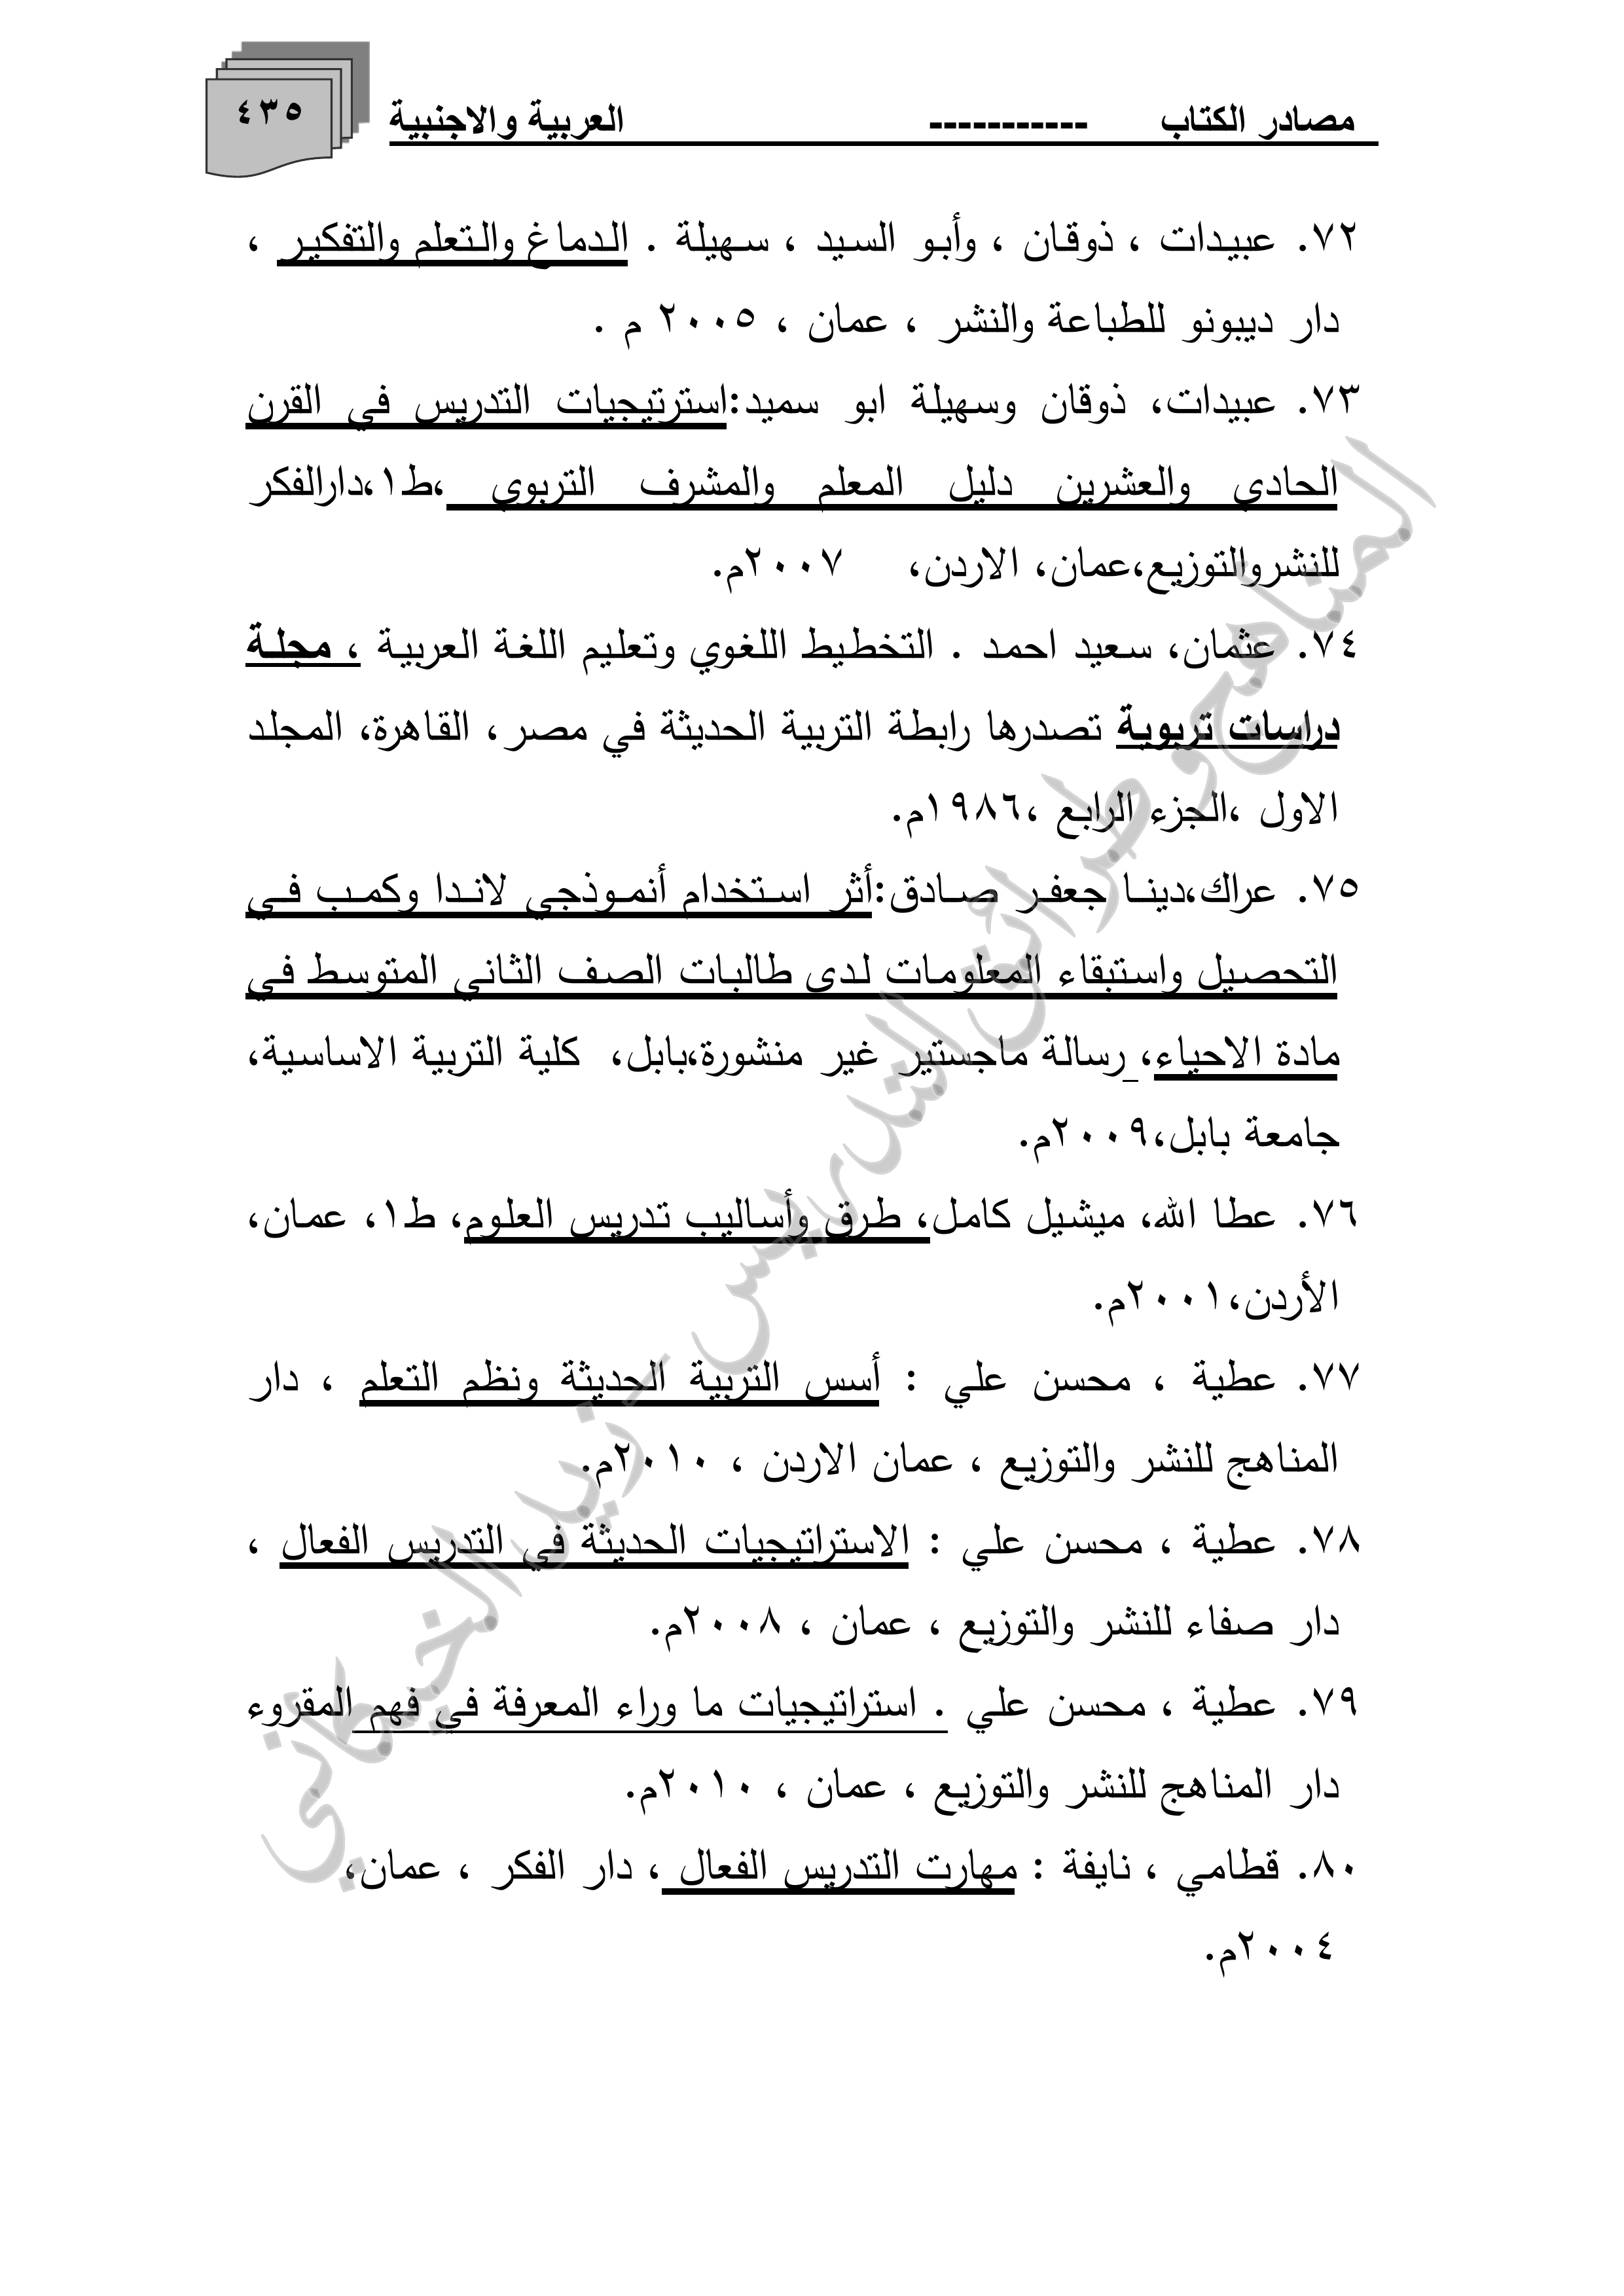 مصادر الكتاب ----------- العربية والاجنبية
٤٣٥
٧٢. عبيدات ، ذوقان ، وأبو السيد ، سهيلة . الدماغ والتعلم والتفكير ،
دار ديبونو للطباعة والنشر ، عمان ، ٢٠٠٥ م .
٧٣. عبيدات، ذوقان وسهيلة ابو سميد:استرتيجيات التدريس في القرن
الحادي والعشرين دليل المعلم والمشرف التربوي ،ط١،دارالفكر
للنشروالتوزيع،عمان، الاردن، ٢٠٠٧م.
٧٤. عثمان، سعيد احمد . التخطيط اللغوي وتعليم اللغة العربية ، مجلة
دراسات تربوية تصدرها رابطة التربية الحديثة في مصر، القاهرة، المجلد
الاول ،الجزء الرابع ،١٩٨٦م.
٧٥. عراك،دينا جعفر صادق:أثر استخدام أنموذجي لاندا وكمب في
التحصيل واستبقاء المعلومات لدى طالبات الصف الثاني المتوسط في
مادة الاحياء، رسالة ماجستير غير منشورة،بابل، كلية التربية الاساسية،
جامعة بابل،٢٠٠٩م.
٧٦. عطا الله، ميشيل كامل، طرق وأساليب تدريس العلوم، ط١، عمان،
الأردن،٢٠٠١م.
٧٧. عطية ، محسن علي : أسس التربية الحديثة ونظم التعلم ، دار
المناهج للنشر والتوزيع ، عمان الاردن ، ٢٠١٠م.
٧٨. عطية ، محسن علي : الاستراتيجيات الحديثة في التدريس الفعال ،
دار صفاء للنشر والتوزيع ، عمان ، ٢٠٠٨م.
٧٩. عطية ، محسن علي . استراتيجيات ما وراء المعرفة في فهم المقروء
دار المناهج للنشر والتوزيع ، عمان ، ٢٠١٠م.
٨٠. قطامي ، نايفة : مهارت التدريس الفعال ، دار الفكر ، عمان،
٢٠٠٤م.
المناهج وطرائق التدريس - زيد الخيكاني